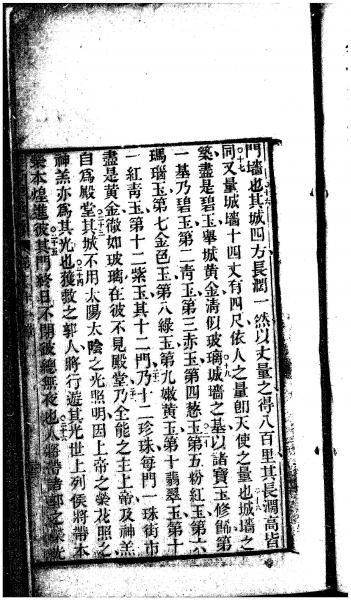 門墻也其城四方長濶一然以丈量之得八百里其長濶高皆
同又量城墻十四丈有四尺依人之量卽天使之量也城墻之
築盡是碧玉舉城黃金淸似玻璃城墻之基以諸寶玉修飾第
一基乃碧玉第二靑玉第三赤玉第四葱玉第五粉紅玉第六
瑪瑙玉第七金色玉第八綠玉第九嫩黃玉第十翡翠玉第十
一紅靑玉第十二紫玉其十二門乃十二珍珠每門一珠街市
盡是黃金徹如玻璃在彼不見殿堂乃全能之主上帝及神羔
自爲殿堂其城不用太陽太陰之光照明因上帝之榮花照之
神羔亦爲其光也獲救之郭人將行遊其光世上列侯將帶本
榮本煌進彼其門終日不閉彼總無夜也人將帶諸郭之榮光